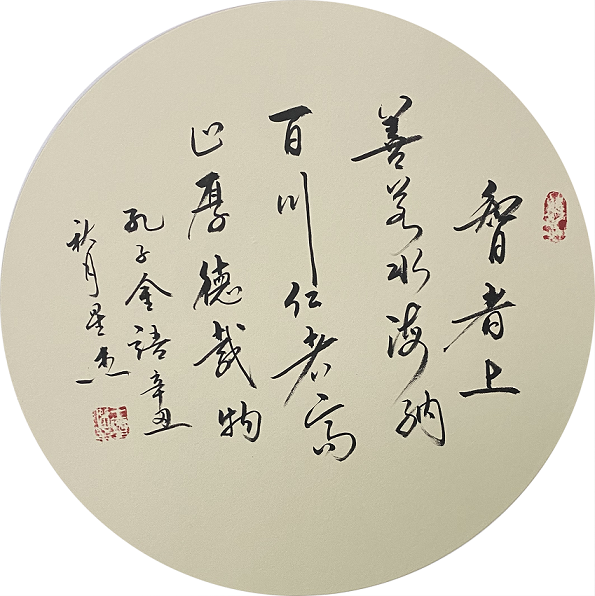 智者上
善若水海纳
百川仁者高
山厚德载物
孔子金语辛丑
秋月星